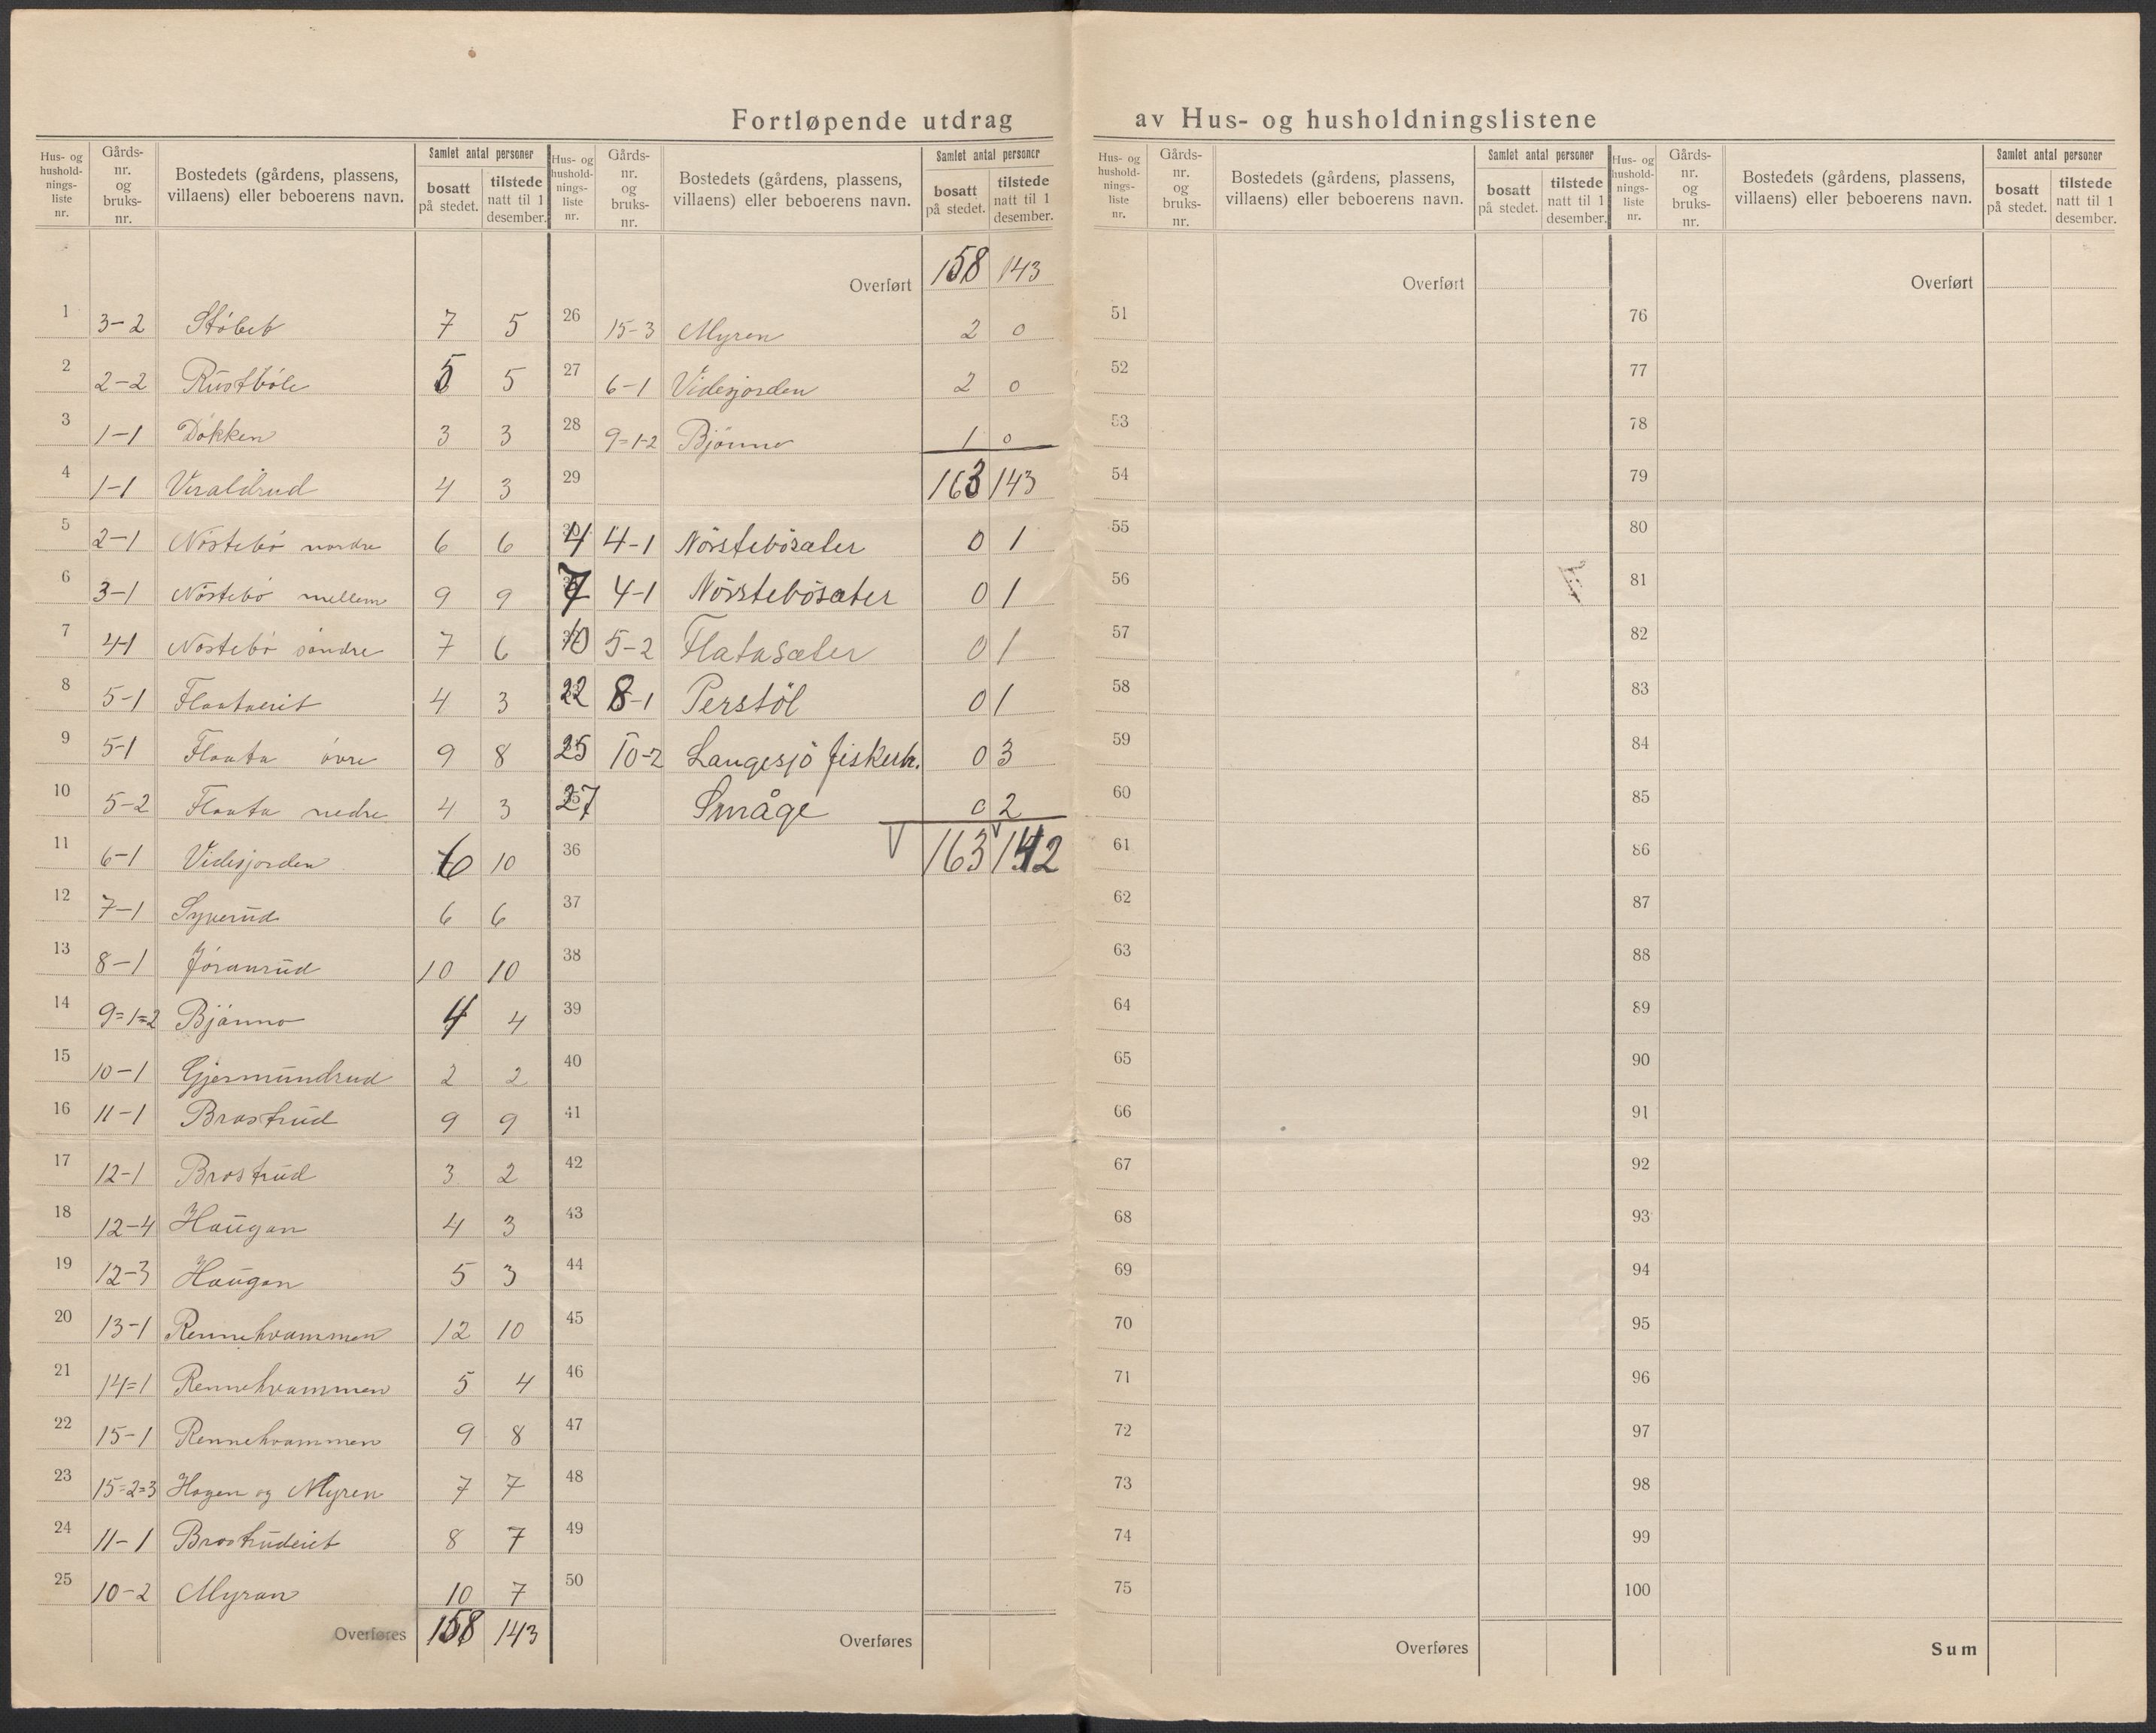 Fortløpende utdrag av Hus- og husholdningslistene
Hus- og hushold-nings-liste nr. | Gårds-nr. og bruks-nr. | Bostedets (gårdens, plassens, villaens) eller beboerens navn. | Samlet antal personer | bosatt på stedet. | tilstede natt til 1 desember.
1 3-2 Støbet 7 5
2 2-2 Rustbøle 5 5
3 1-1 Døkken 3 3
4 1-1 Veraldrud 4 3
5 2-1 Nøstebø nordre 6 6
6 3-1 Nøstebø mellem 9 9
7 4-1 Nøstebø søndre 7 6
8 5-1 Flaataeiet 4 3
9 5-1 Flaata øvre 9 8
10 5-2 Flaata nedre 4 3
11 6-1 Videsjorden 6 10
12 7-1 Syverud 6 6
13 8-1 Jøranrud 10 10
14 9=1=2 Bjønno 4 4
15 10-1 Gjermundrud 2 2
16 11-1 Brostrud 9 9
17 12-1 Brostrud 3 2
18 12-4 Haugan 4 3
19 12-3 Haugan 5 3
20 13-1 Rennehvammen 12 10
21 14=1 Rennehvammen 5 4
22 15-1 Rennehvammen 9 8
23 15=2=3 Hagen og Myren 7 7
24 11-1 Brostrudeiet 8 7
25 10-2 Myran 10 7
Overføres 158 143
Hus- og hushold-nings-liste nr. | Gårds-nr. og bruks-nr. | Bostedets (gårdens, plassens, villaens) eller beboerens navn. | Samlet antal personer | bosatt på stedet. | tilstede natt til 1 desember.
Overført 158 143
26 15-3 Myren 2 0
27 6-1 Videsjorden 2 0
28 9=1-2 Bjønno 1 0
29 163 143
4 4-1 Nørstebösæter 0 1
7 4-1 Nørstebösæter 0 1
10 5-2 Flatasæter 0 1
22 8-1 Perstöl 0 1
25 10-2 Langesjö fiskerh. 0 3
27 Småge 0 2
36 V 163 V 142
37
38
39
40
41
42
43
44
45
46
47
48
49
50
Overføres
Hus- og hushold-nings-liste nr. | Gårds-nr. og bruks-nr. | Bostedets (gårdens, plassens, villaens) eller beboerens navn. | Samlet antal personer | bosatt på stedet. | tilstede natt til 1 desember.
Overført
51
52
53
54
55
56
57
58
59
60
61
62
63
64
65
66
67
68
69
70
71
72
73
74
75
Overføres
Hus- og hushold-nings-liste nr. | Gårds-nr. og bruks-nr. | Bostedets (gårdens, plassens, villaens) eller beboerens navn. | Samlet antal personer | bosatt på stedet. | tilstede natt til 1 desember.
Overført
76
77
78
79
80
81
82
83
84
85
86
87
88
89
90
91
92
93
94
95
96
97
98
99
100
Sum